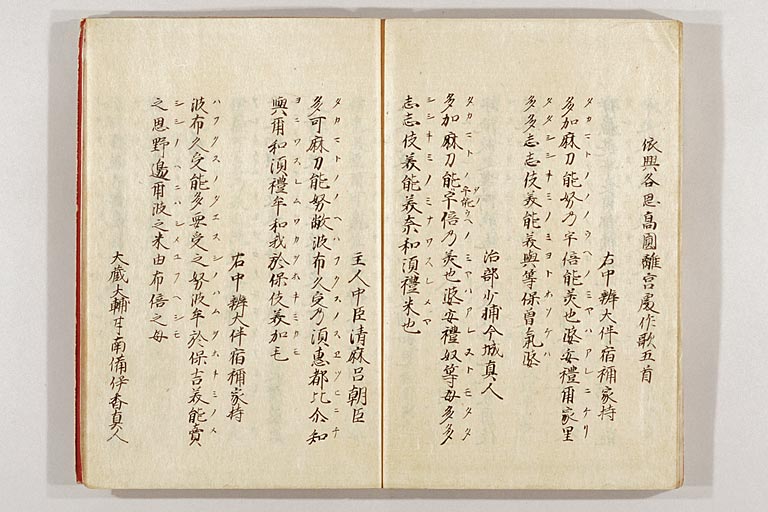 依興各思高圓離宮處作歌五首
右中辨大伴宿祢家持
タカマトノノノウヘノミヤハアレニケリ
多加麻刀能努乃宇倍能美也婆安禮爾家里
タタシシキミノミヨトホソケハ
多多志志伎美能美與等保曽氣婆
治部少輔今城真人
タカマトノヲノウヘノミヤハアレヌトモタタ
多加麻刀能乎能宇倍乃美也婆安禮奴等母多多
シシキミノミナワスレメヤ
志志伎美能美奈和須禮米也
主人中臣清麻呂朝臣
タカマトノノヘハフクスノスヱツヒニチ
多可麻刀能努敝波布久受乃須惠都比尓知
ヨニワスレムワカオホキミカモ
與爾和須禮牟和我於保伎美加毛
右中辨大伴宿祢家持
ハフクスノタエスシノハムオホキミノメ
波布久受能多要受之努波牟於保吉美能賣
シシノヘニハシメユフヘシモ
之思野邊爾波之米由布倍之母
大蔵大輔甘南備伊香真人